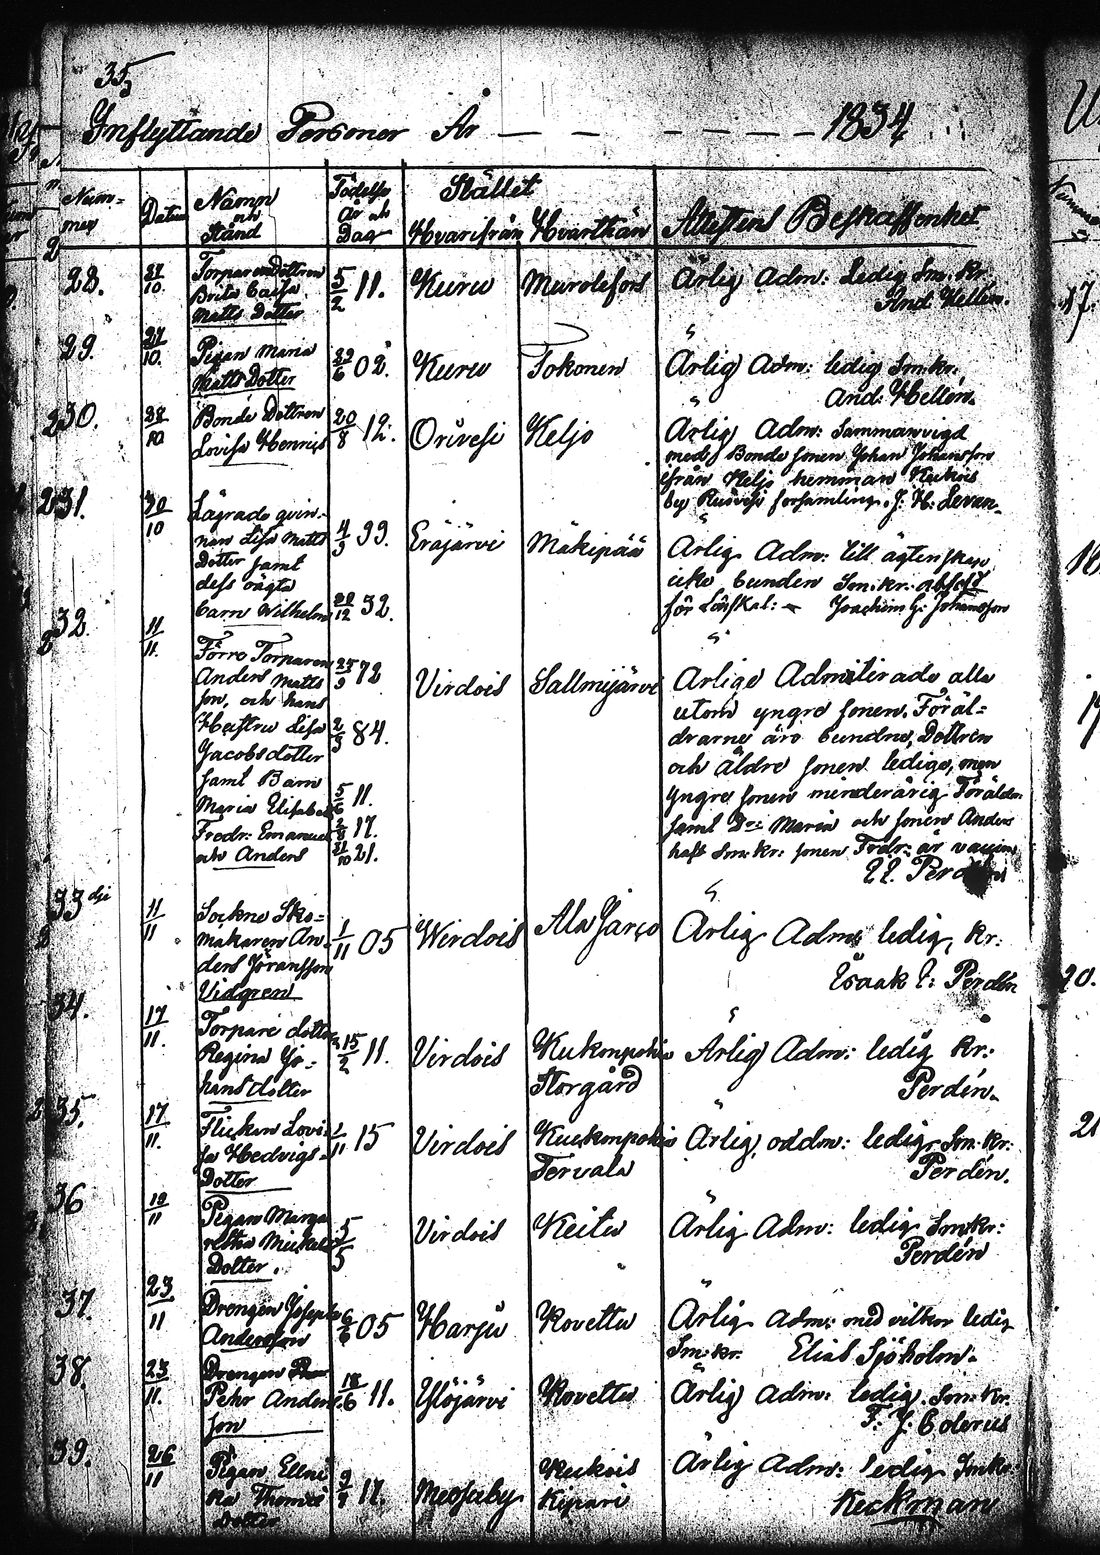 35
Inflyttande Personer År — — — — — — 1834
Num=
mer
Datum
Namn
och
Stånd
Födelse
År och
Dag
Stället
Hvarifrån Hvarthän
Attestens Beskaffenhet
28. 27/10. Torpare Dottren
Brita Caisa
Matts Dotter
5/2 11. Kuru Murolefors
Ärlig Adm: Ledig Sm. kr.
And. Hellén.
29. 27/10. Pigan Maria
Matts Dotter
02. Kuru Tokonen
Ärlig Adm: ledig Sm: kr:
And: Hellén.
30. Bonde Dottren
Lovisa Henrics
20/8 12. Orivesi Keljo
Ärlig Adm: Sammanvigd
med Bonde sonen Johan Johansson
ifrån Keljo hemman Keckois
by Ruovesi forsamling. J. H: Levan.
31. 30/10 Lägrade qvin-
nan Lisa Matts
Dotter samt
dess oägta
barn Wilhelm
4/9 99. Eräjärvi Mäkipää
32.
Ärlig Adm: till ägtenskap
icke bunden Sm: kr:
för Lönskal: Joachim G: Johansson
32. 11/11. Förre Torparen
Anders Matts
son, och hans
Hustru Lisa
Jacobsdotter
samt Barn
Maria Elisabet
Fredr: Emanuel
och Anders
72
84.
5/6 11.
2/8 17.
21/10 21.
Virdois Sallmijärvi
Ärlige Admiterade alla
utom yngre sonen. Föräl=
drarne äro bundne, Dottren
och äldre sonen ledige, men
yngre sonen minderårig Föräldr:
samt Maria och sonen Anders
haft Sm: kr: sonen Fredr: är vaccin
33 11/11 Sockne Sko=
makaren An-
ders Jöransson
Vidgren
1/11 05 Wirdois Ala Jarço
Ärlig Adm: ledig, kr:
Isaak E: Perdén
34. 17/11. Torpare dotter
Regina Jo-
hansdotter
15/2 11. Virdois Kukonpohia
Storgård
Ärlig Adm: ledig kr:
Perdén.
35. 17/11. Flickan Lovi-
sa Hedvigs-
Dotter
15 Virdois Kuckonpohia
Tervala
Ärlig addm: ledig Sm: kr:
Perdén.
36 19/11 Pigan Marga
retha Mickels
Dotter.
5/5 Virdois Keitu
Ärlig Adm: ledig Sm: kr:
Perdén
37. 23/11 Drengen Joseph
Andersson
6/6 05 Harju Rovettu
Ärlig Adm: med vilkor ledig
Sm: kr. Elias Sjöholm.
38. 23/11. Drengen
Pehr Anders
son
18/6 11. Ylöjärvi Rovettu
Ärlig Adm: ledig. Sm: Kr.
F. J. Colerus
39. 26/11 Pigan
Thomas
Dotter
Keckois
Ärlig Adm: ledig Smkr:
Keckman